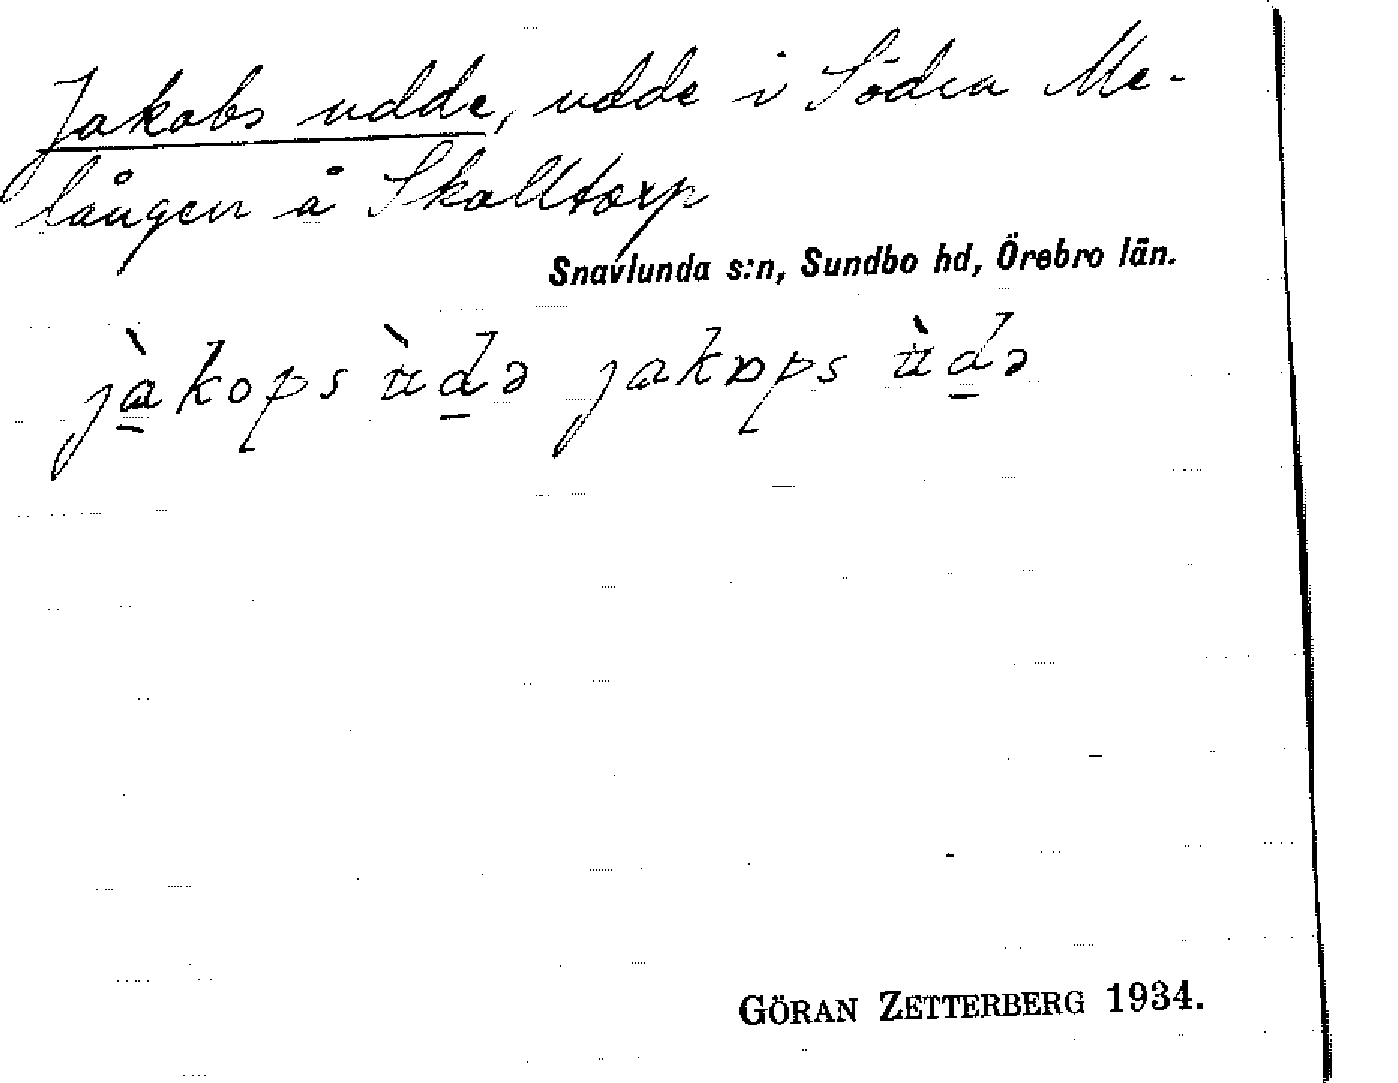 Jakobs udde, udde i Södra Me-
lången å Skalltorp
Snavlunda s:n, Sundbo hd, Örebro län.
jàkops ùdə jakɒps ùdə
GÖRAN ZETTERBERG 1934.